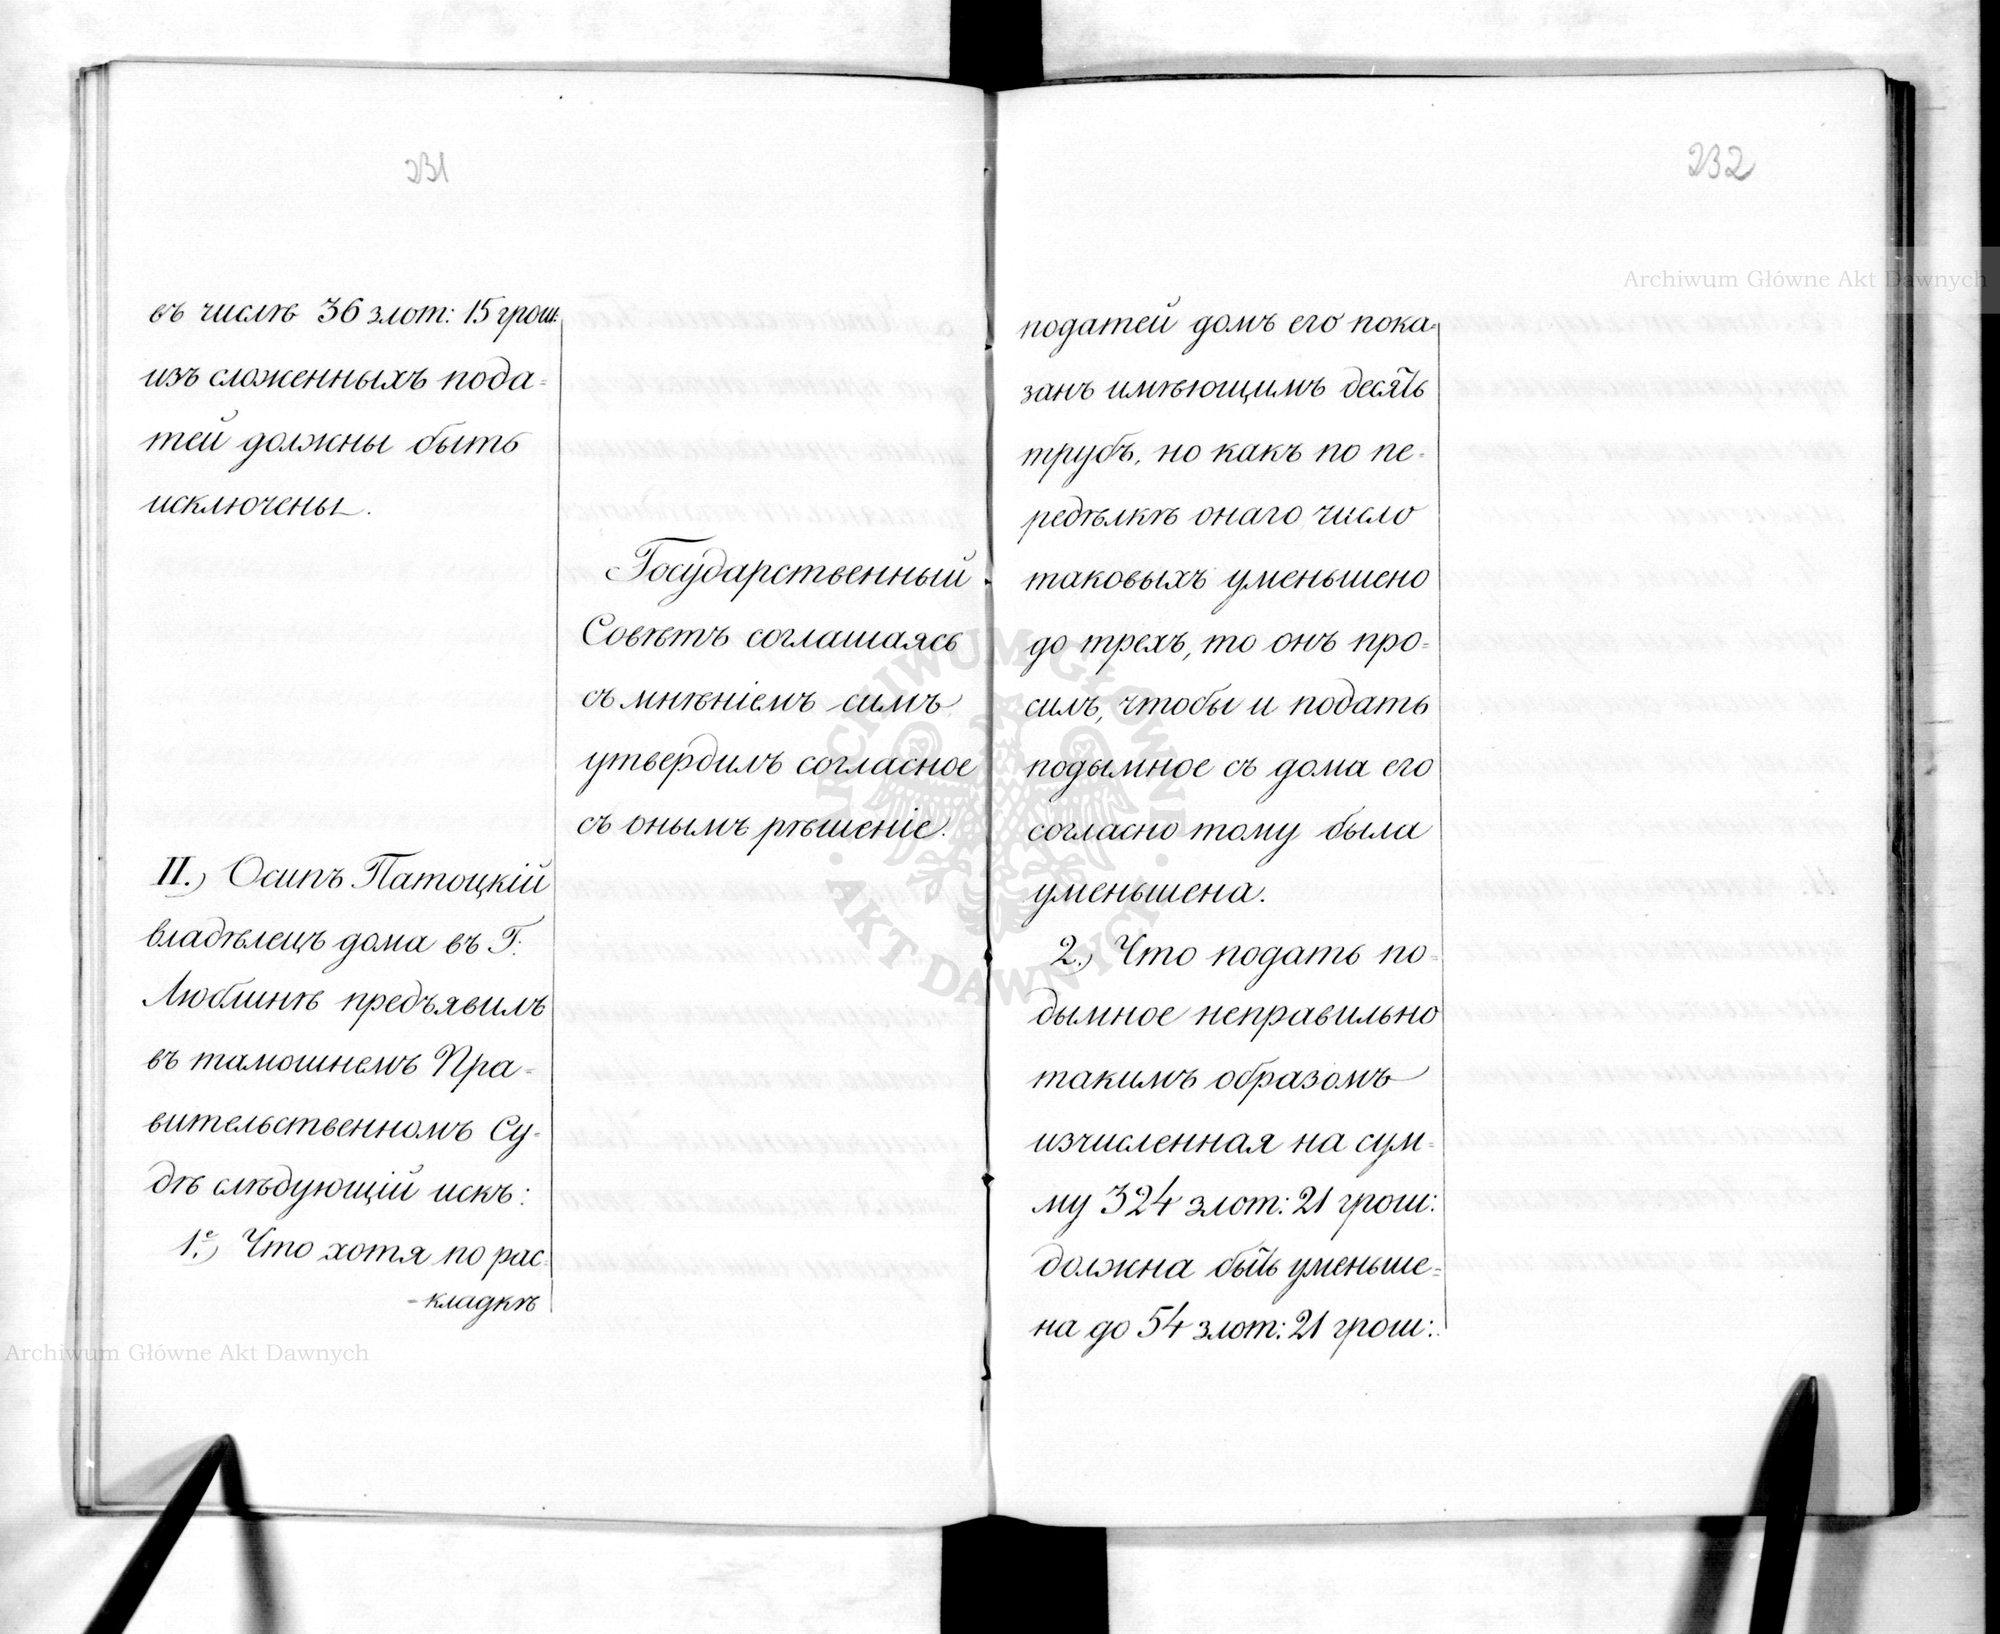 231
въ числѣ 36 злот: 15 грош:
изъ сложенныхъ пода=
тей должны быть
исключены.
Государственный
Совѣтъ соглашаясь
съ мнѣніемъ симъ
утвердилъ согласное
съ онымъ рѣшеніе.
II.) Осипъ Патоцкій
владѣлецъ дома въ Г.
Люблинѣ предъявилъ
въ тамошнемъ Пра=
вительственномъ Су=
дѣ слѣдующій искъ:
1е) Что хотя по рас=
-кладкѣ
232
податей домъ его пока=
занъ имѣющимъ десять
трубъ, но какъ по пе=
редѣлкѣ онаго число
таковыхъ уменьшено
до трехъ, то онъ про=
силъ, чтобы и подать
подымное съ дома его
согласно тому была
уменьшена.
2.) Что подать по=
дымное неправильно
такимъ образомъ
изчисленная на сум=
му 324 злот: 21 грош:
должна быть уменьше=
на до 54 злот: 21 грош:
Archiwum Główne Akt Dawnych
Archiwum Główne Akt Dawnych
ARCHIWUM GŁÓWNE
AKT DAWNYCH